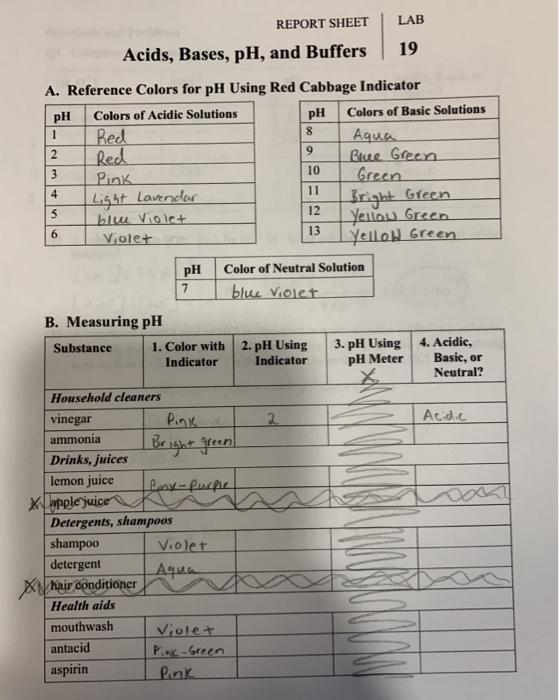 REPORT SHEET LAB
Acids, Bases, pH, and Buffers 19
A. Reference Colors for pH Using Red Cabbage Indicator
pH Colors of Acidic Solutions pH Colors of Basic Solutions
1 Red 8 Aqua
2 Red 9 Blue Green
3 Pink 10 Green
4 Light Lavendar 11 Bright Green
5 blue violet 12 Yellow Green
6 Violet 13 Yellow Green
pH Color of Neutral Solution
7 blue violet
B. Measuring pH
Substance 1. Color with 2. pH Using 3. pH Using 4. Acidic,
Indicator Indicator pH Meter Basic, or
X Neutral?
Household cleaners
vinegar Pink 2 Acidic
ammonia Bright green
Drinks, juices
lemon juice Pink-Purple
X apple juice
Detergents, shampoos
shampoo Violet
detergent Aqua
X hair conditioner
Health aids
mouthwash Violet
antacid Pink-Green
aspirin Pink